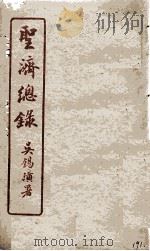 聖濟總錄
吳錫璜署
191